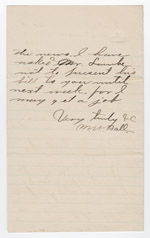 the news. I have
asked Mr.
not to present his
bill to you until
next week for I
may get a job
Very truly &c